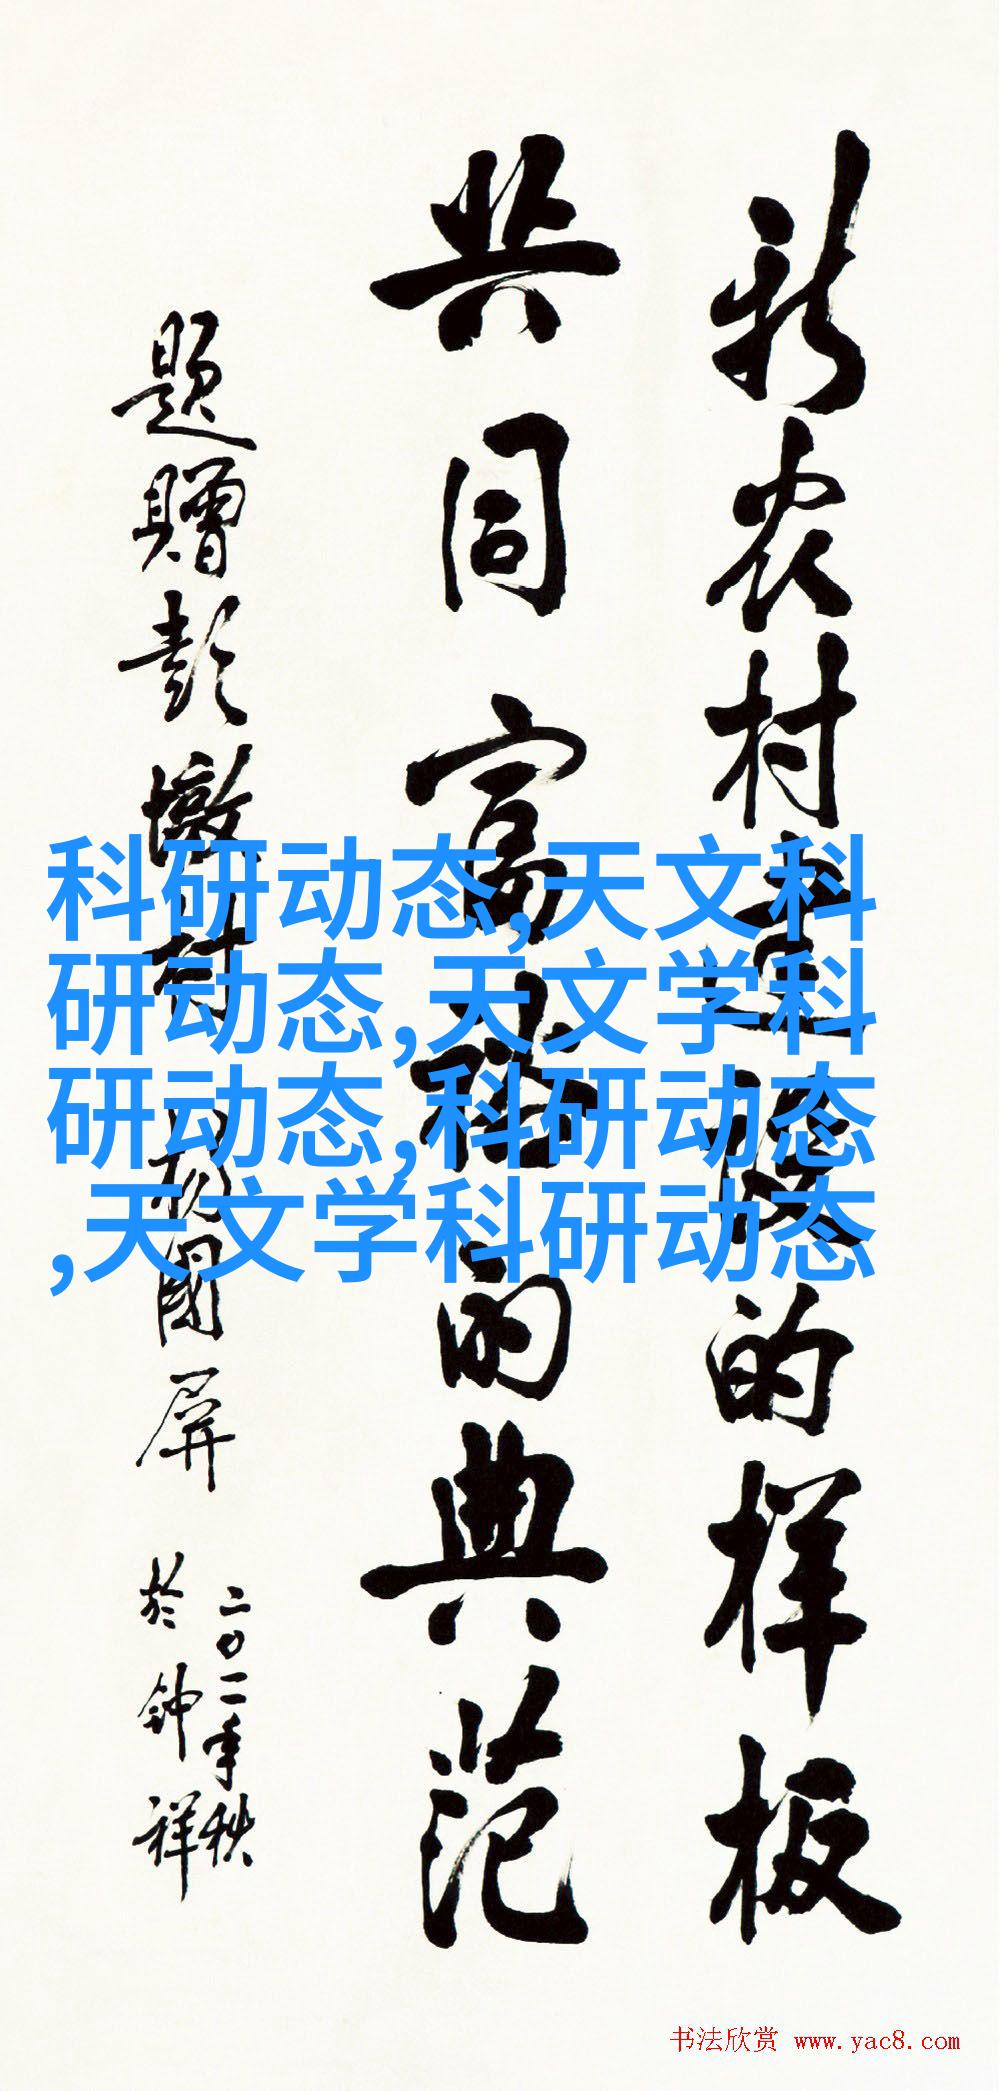 新农村建设的样板
共同富裕的典范
题赠彭墩村
杨国屏
二〇一一年秋
於钟祥
科研动态,天文科
研动态,天文学科
研动态,科研动态
,天文学科研动态
书法欣赏 www.yac8.com